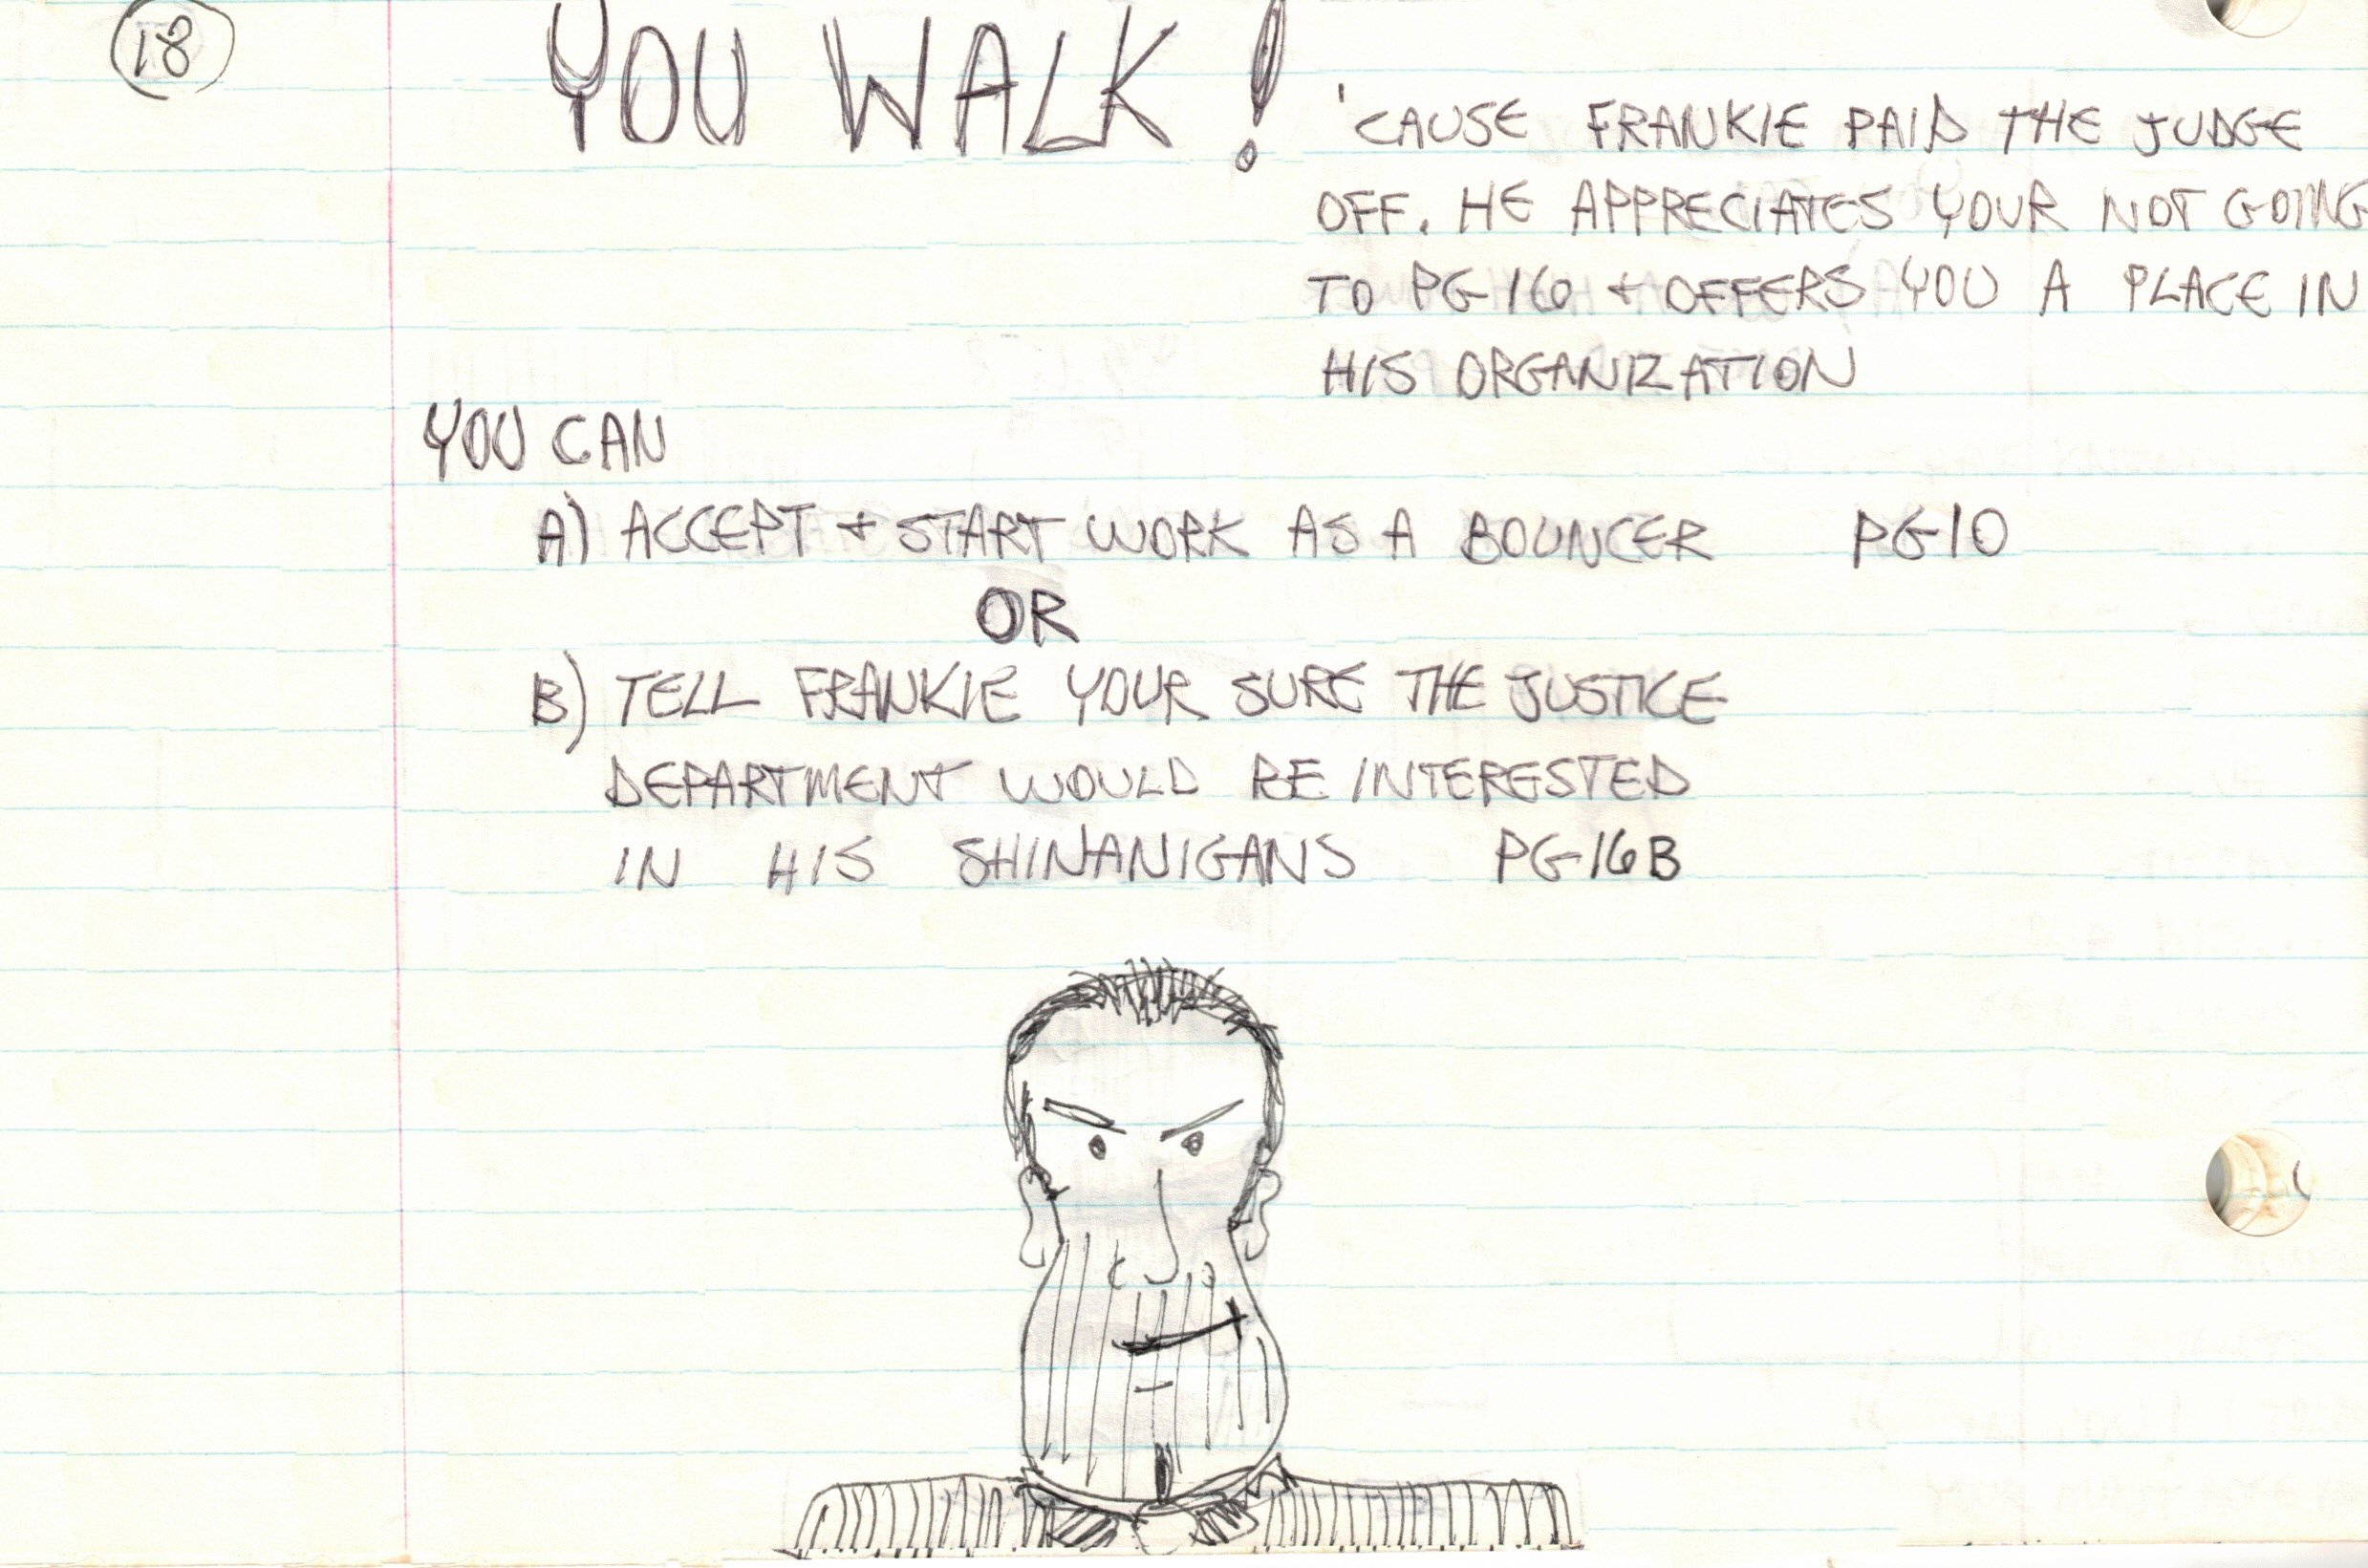 18
YOU WALK!
'CAUSE FRANKIE PAID THE JUDGE
OFF. HE APPRECIATES YOUR NOT GOING
TO PG 16 + OFFERS YOU A PLACE IN
HIS ORGANIZATION
YOU CAN
A) ACCEPT + START WORK AS A BOUNCER PG 10
OR
B) TELL FRANKIE YOUR SURE THE JUSTICE
DEPARTMENT WOULD BE INTERESTED
IN HIS SHINANIGANS PG 16B